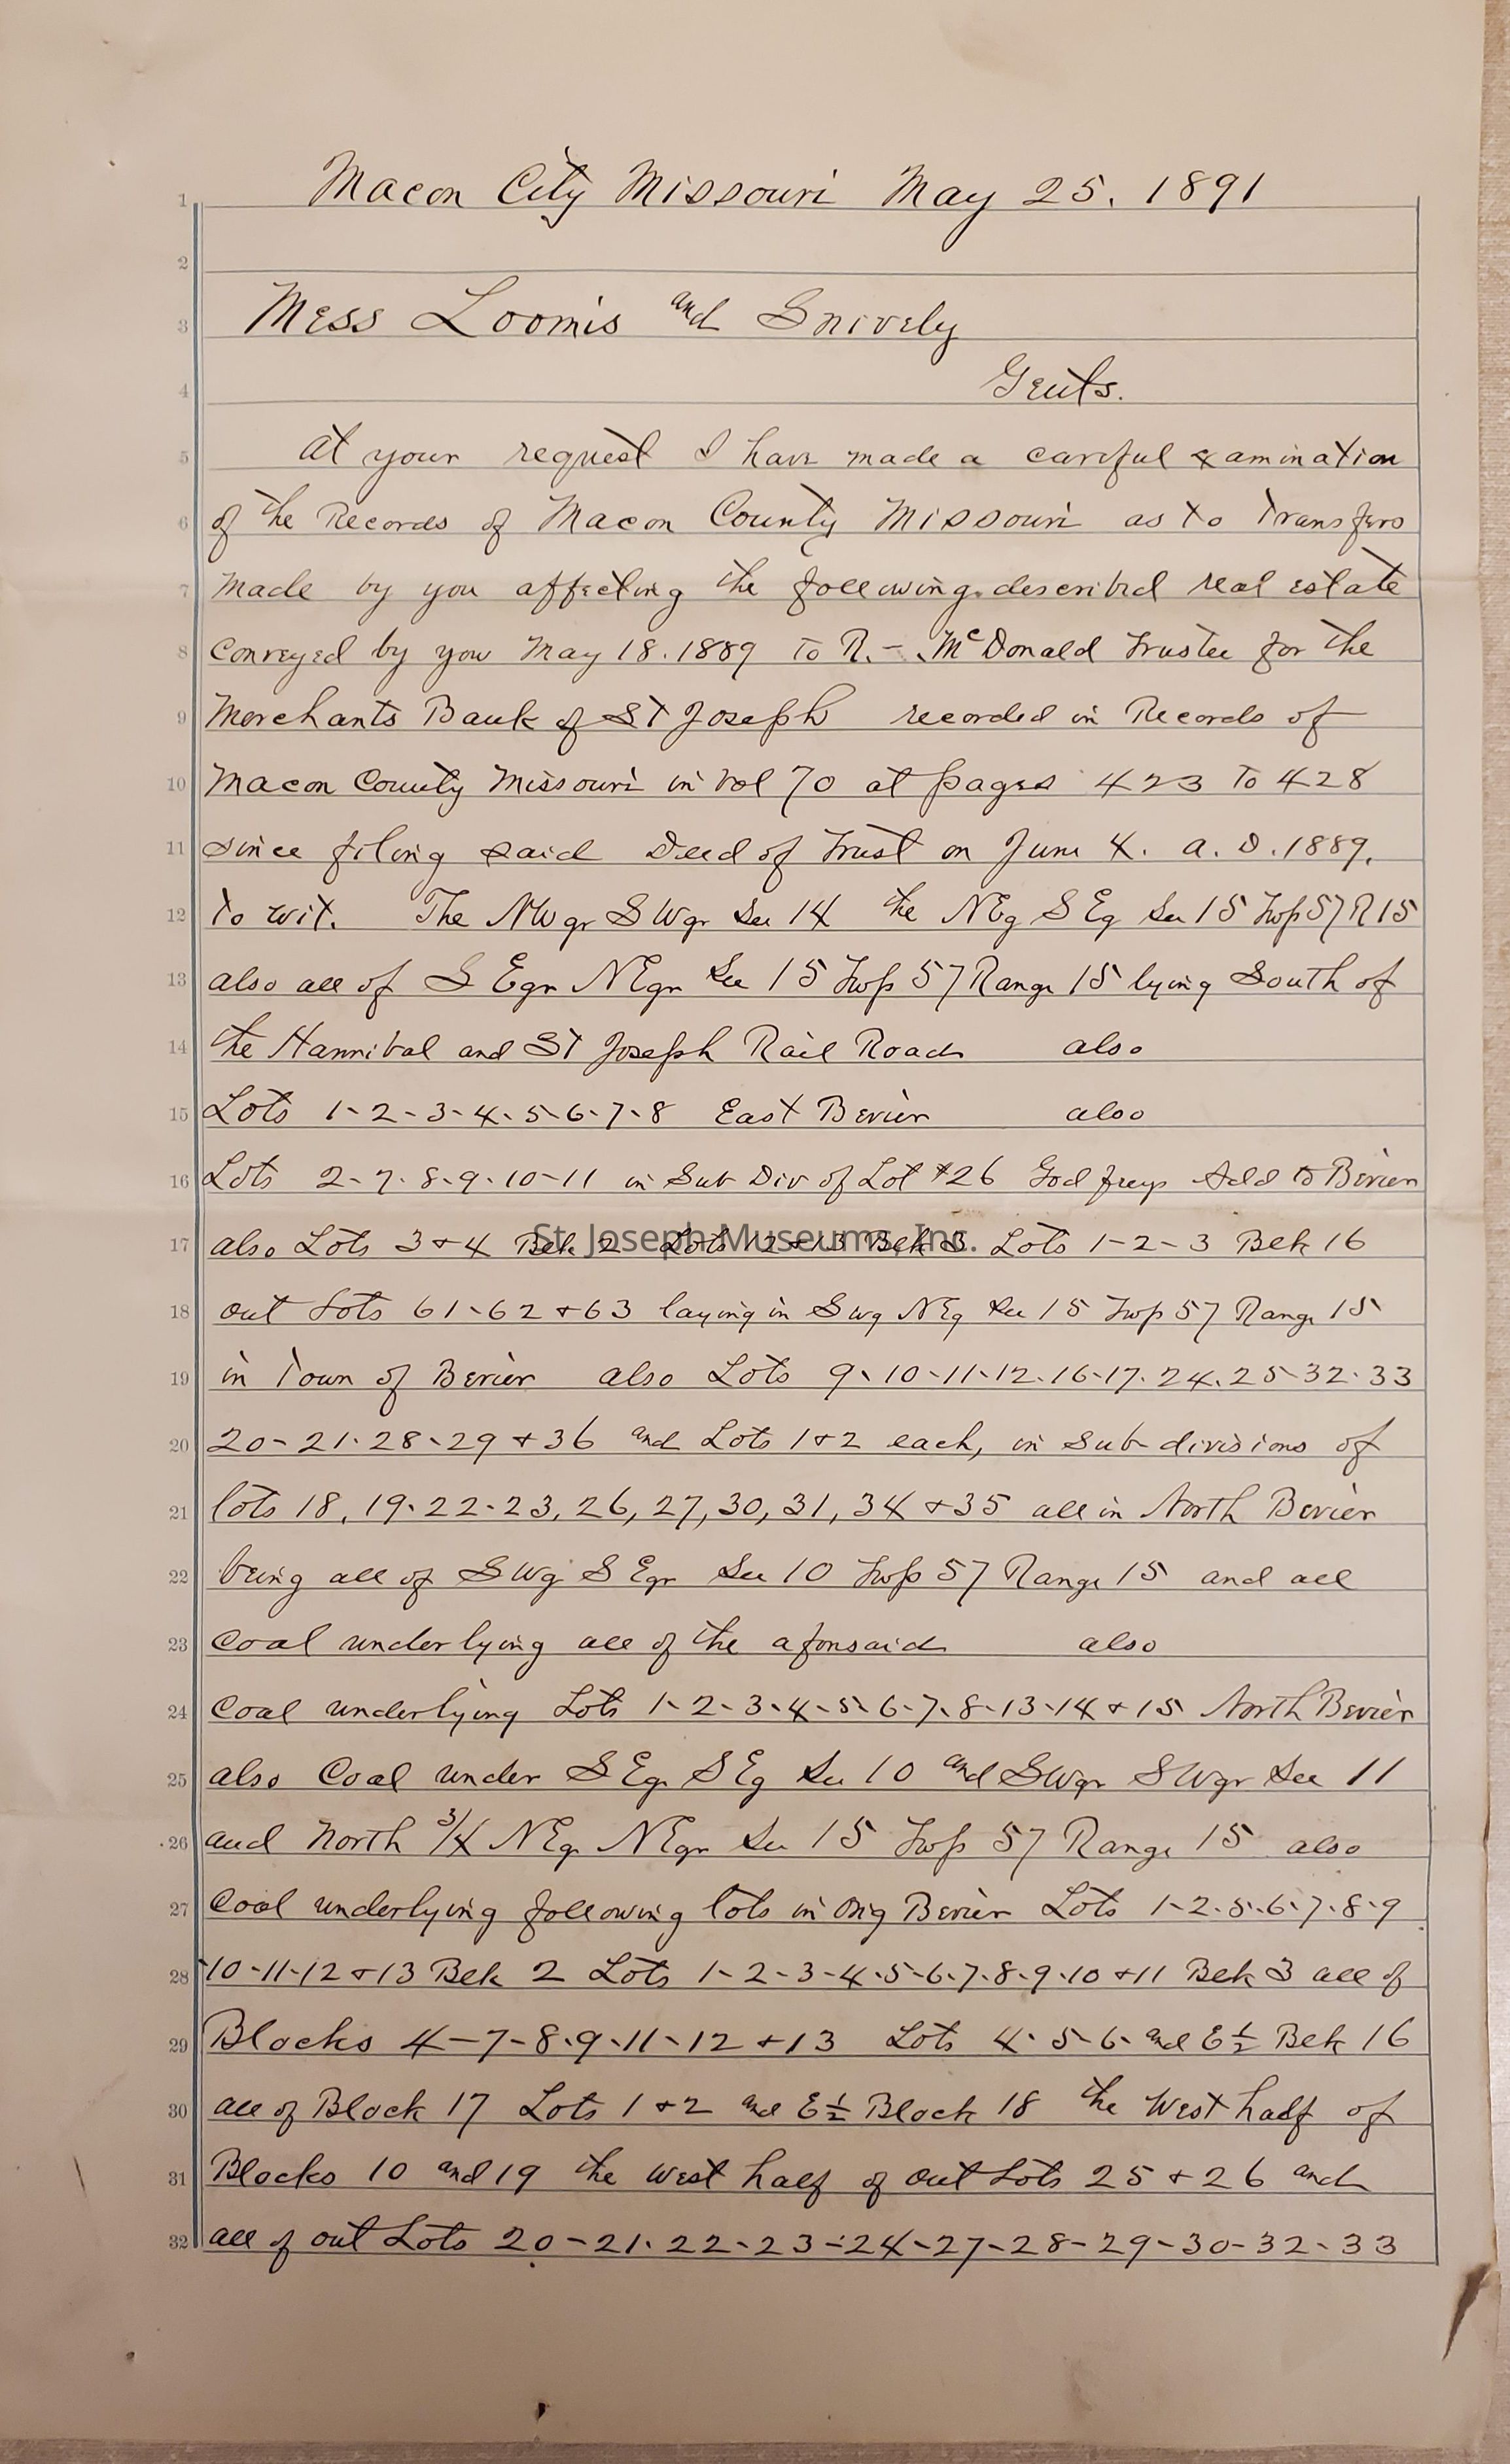 1 Macon City Missouri May 25. 1891
2
3 Mess Loomis and Snively
4 Gents.
5 At your request I have made a careful examination
6 of the Records of Macon County Missouri as to Transfers
7 made by you affecting the following described real estate
8 conveyed by you May 18. 1889 to R. - McDonald Trustee for the
9 Merchants Bank of St Joseph recorded in Records of
10 Macon County Missouri in Vol 70 at pages 423 to 428
11 since filing said Deed of Trust on June 4. A. D. 1889,
12 to wit. The NWqr SWqr Sec 14 the NEq SEq Sec 15 Twp 57 R 15
13 also all of SEqr NEqr Sec 15 Twp 57 Range 15 lying South of
14 the Hannibal and St Joseph Rail Road also
15 Lots 1-2-3-4-5-6-7-8 East Bevier also
16 Lots 2-7-8-9-10-11 in Sub Div of Lot #26 Godfreys Add to Bevier
17 also Lots 3+4 Blk 2 Lots 12+13 Blk 3 Lots 1-2-3 Blk 16
St. Joseph Museums, Inc.
18 out Lots 61-62+63 laying in Swq NEq Sec 15 Twp 57 Range 15
19 in Town of Bevier also Lots 9-10-11-12-16-17-24-25-32-33
20 20-21-28-29+36 and Lots 1+2 each, in Sub-divisions of
21 lots 18, 19-22-23, 26, 27, 30, 31, 34+35 all in North Bevier
22 being all of SWq SEqr Sec 10 Twp 57 Range 15 and all
23 Coal underlying all of the aforesaid also
24 Coal underlying Lots 1-2-3-4-5-6-7-8-13-14+15 North Bevier
25 also Coal under SEqr SEq Sec 10 and SWqr SWqr Sec 11
26 and North 3/4 NEq NEqr Sec 15 Twp 57 Range 15 also
27 Coal underlying following lots in Orig Bevier Lots 1-2-5-6-7-8-9
28 10-11-12+13 Blk 2 Lots 1-2-3-4-5-6-7-8-9-10+11 Blk 3 all of
29 Blocks 4-7-8-9-11-12+13 Lots 4-5-6- and E½ Blk 16
30 all of Block 17 Lots 1+2 and E½ Block 18 the West half of
31 Blocks 10 and 19 the west half of out Lots 25+26 and
32 all of out Lots 20-21-22-23-24-27-28-29-30-32-33